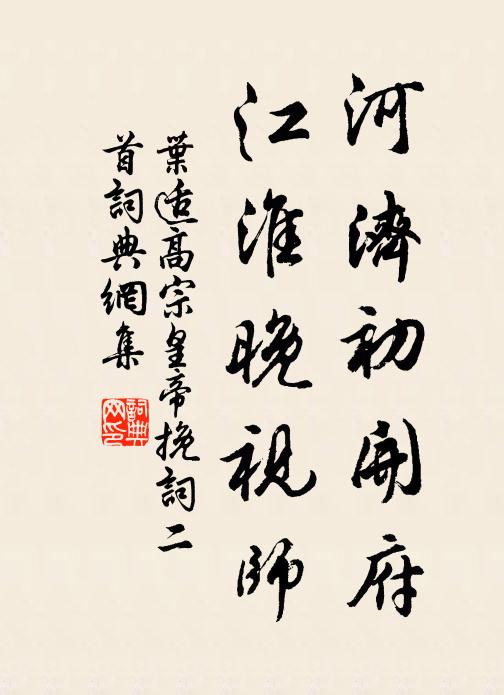 河濟初開府
江淮晚視師
葉适高宗皇帝挽詞二
首詞典網集
詞典
网印